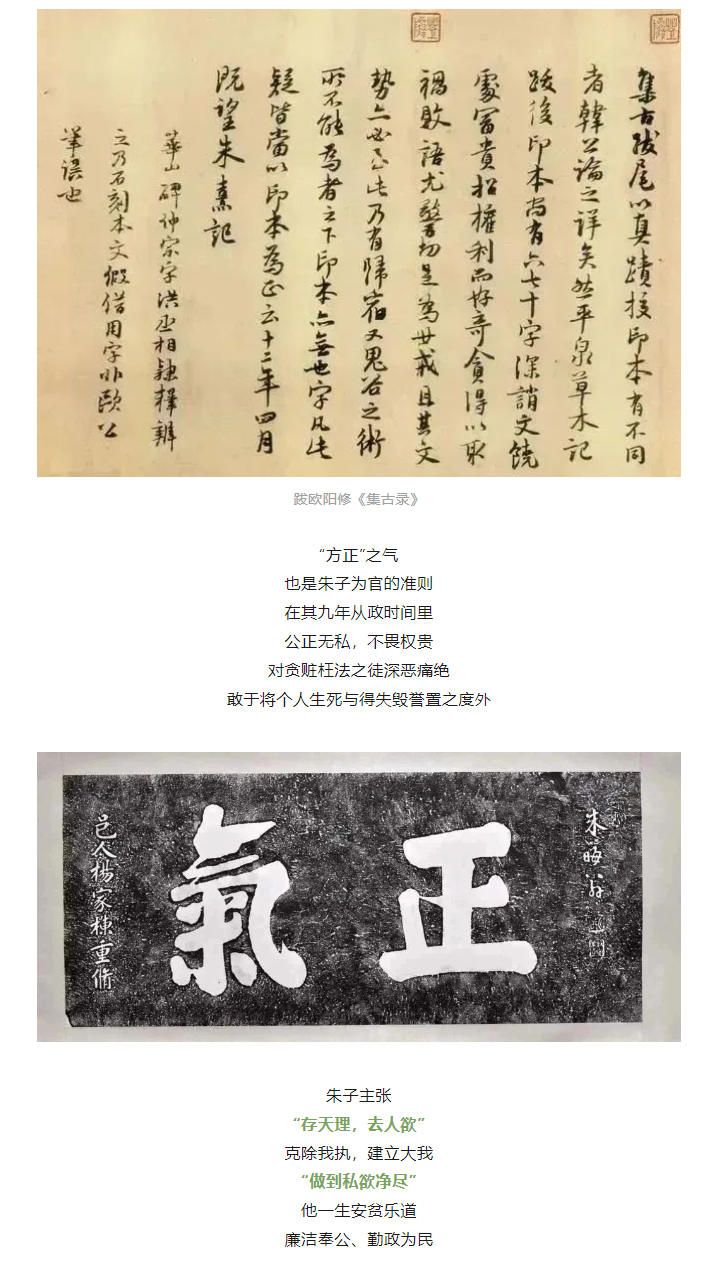 集古跋尾以真蹟挍印本有不同
者韓公論之詳矣然平泉草木記
跋後印本尚有六七十字深誚文饒
處富貴招權利而好奇貪得以取
禍敗語尤警切足為世戒且其文
勢亦必至此乃有歸宿又鬼谷之術
所不能為者之下印本亦無也字凡此
疑皆當以印本為正云十二年四月
既望朱熹記
華山碑仲宗字洪丞相隷釋辨
之乃石刻本文假借用字非歐公
筆誤也
跋欧阳修《集古录》
“方正”之气
也是朱子为官的准则
在其九年从政时间里
公正无私，不畏权贵
对贪赃枉法之徒深恶痛绝
敢于将个人生死与得失毁誉置之度外
朱晦翁
正氣
邑人楊家棟重脩
朱子主张
“存天理，去人欲”
克除我执，建立大我
“做到私欲净尽”
他一生安贫乐道
廉洁奉公、勤政为民